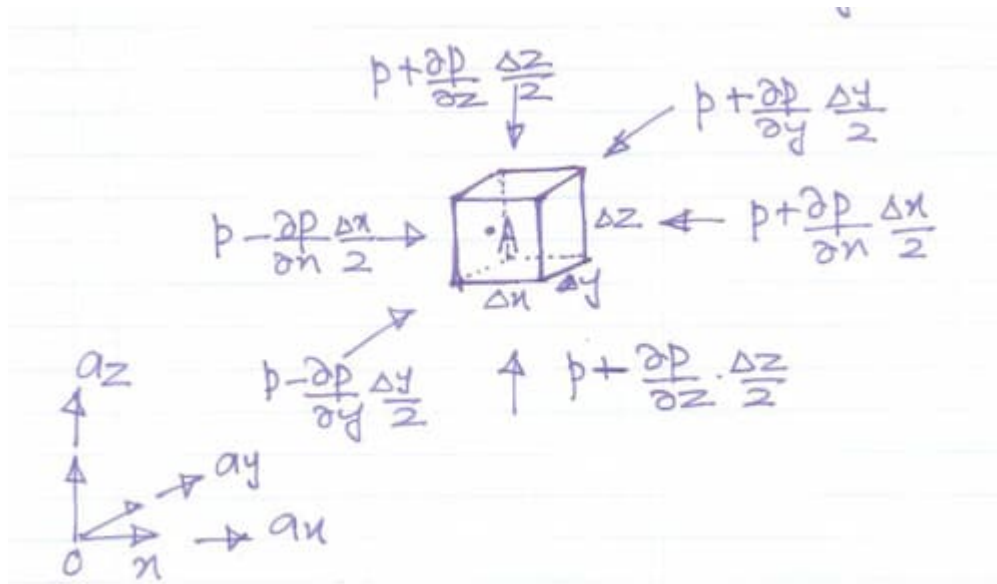 p + ∂p/∂z Δz/2
p + ∂p/∂y Δy/2
p - ∂p/∂x Δx/2
A
Δz
p + ∂p/∂x Δx/2
Δx
Δy
p - ∂p/∂y Δy/2
p + ∂p/∂z . Δz/2
az
ay
ax
0
x